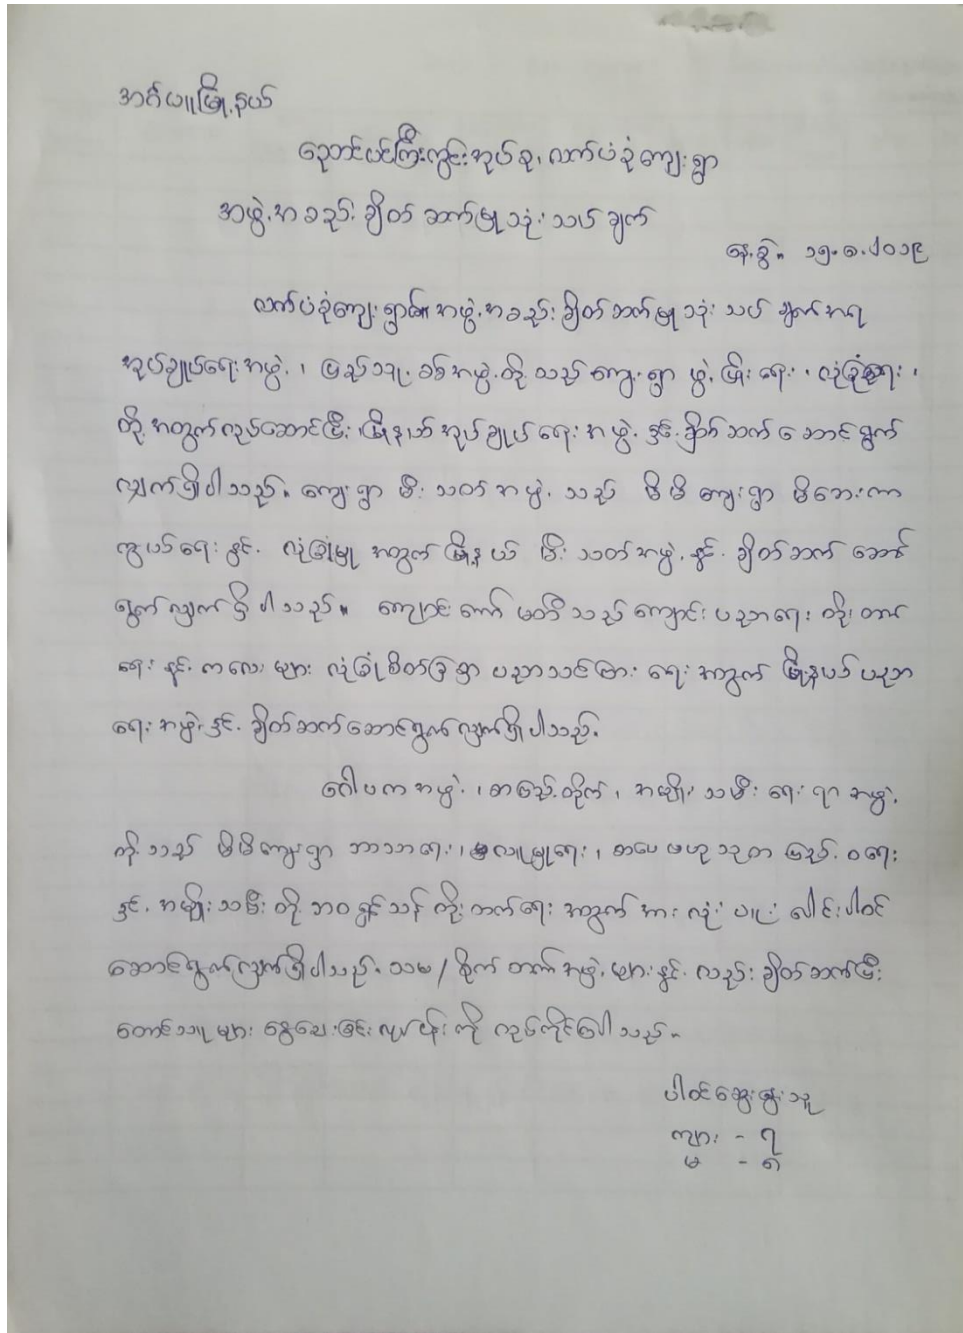 အင်္ဂပူမြို့နယ်
ညောင်ပင်ကြီးကွင်းအုပ်စု၊ လက်ပံခုံကျေးရွာ
အဖွဲ့အစည်း ချိတ်ဆက်မှု သုံးသပ်ချက်
နေ့စွဲ။ ၁၅.၈.၂၀၁၉
လက်ပံခုံကျေးရွာ၏ အဖွဲ့အစည်း ချိတ်ဆက်မှု သုံးသပ်ချက်အရ
အုပ်ချုပ်ရေးအဖွဲ့၊ ပြည်သူ့စစ်အဖွဲ့တို့သည် ကျေးရွာ ဖွံ့ဖြိုးရေး၊ လုံခြုံရေး၊
တို့အတွက် လုပ်ဆောင်ပြီး မြို့နယ် အုပ်ချုပ်ရေးအဖွဲ့နှင့် ချိတ်ဆက် ဆောင်ရွက်
လျှက်ရှိပါသည်။ ကျေးရွာ မီးသတ်အဖွဲ့သည် မိမိကျေးရွာ မီဘေးကာ
ကွယ်ရေးနှင့် လုံခြုံမှု အတွက် မြို့နယ် မီးသတ်အဖွဲ့နှင့် ချိတ်ဆက် ဆောင်
ရွက်လျှက်ရှိပါသည်။ ကျောင်းကော်မတီသည် ကျောင်းပညာရေး တိုးတက်
ရေးနှင့် ကလေးများ လုံခြုံစိတ်ချစွာ ပညာသင်ကြားရေး အတွက် မြို့နယ်ပညာ
ရေးအဖွဲ့နှင့် ချိတ်ဆက်ဆောင်ရွက်လျှက်ရှိပါသည်။
ဂေါပကအဖွဲ့၊ စာကြည့်တိုက်၊ အမျိုးသမီးရေးရာအဖွဲ့
တို့သည် မိမိကျေးရွာ ဘာသာရေး၊ လူမှုရေး၊ စာပေ ဗဟုသုတ ပြည့်ဝရေး
နှင့် အမျိုးသမီးတို့ဘဝ ရှင်သန်တိုးတက်ရေး အတွက် အားလုံး ပူးပေါင်းပါဝင်
ဆောင်ရွက်လျှက်ရှိပါသည်။ သမ/စိုက် ဘဏ်အဖွဲ့များနှင့်လည်း ချိတ်ဆက်ပြီး
တောင်သူများ ငွေချေးခြင်းလုပ်ငန်းကို လုပ်ကိုင်ပါသည်။
ပါဝင်ဆွေးနွေးသူ
ကျား - ၇
မ - ၈